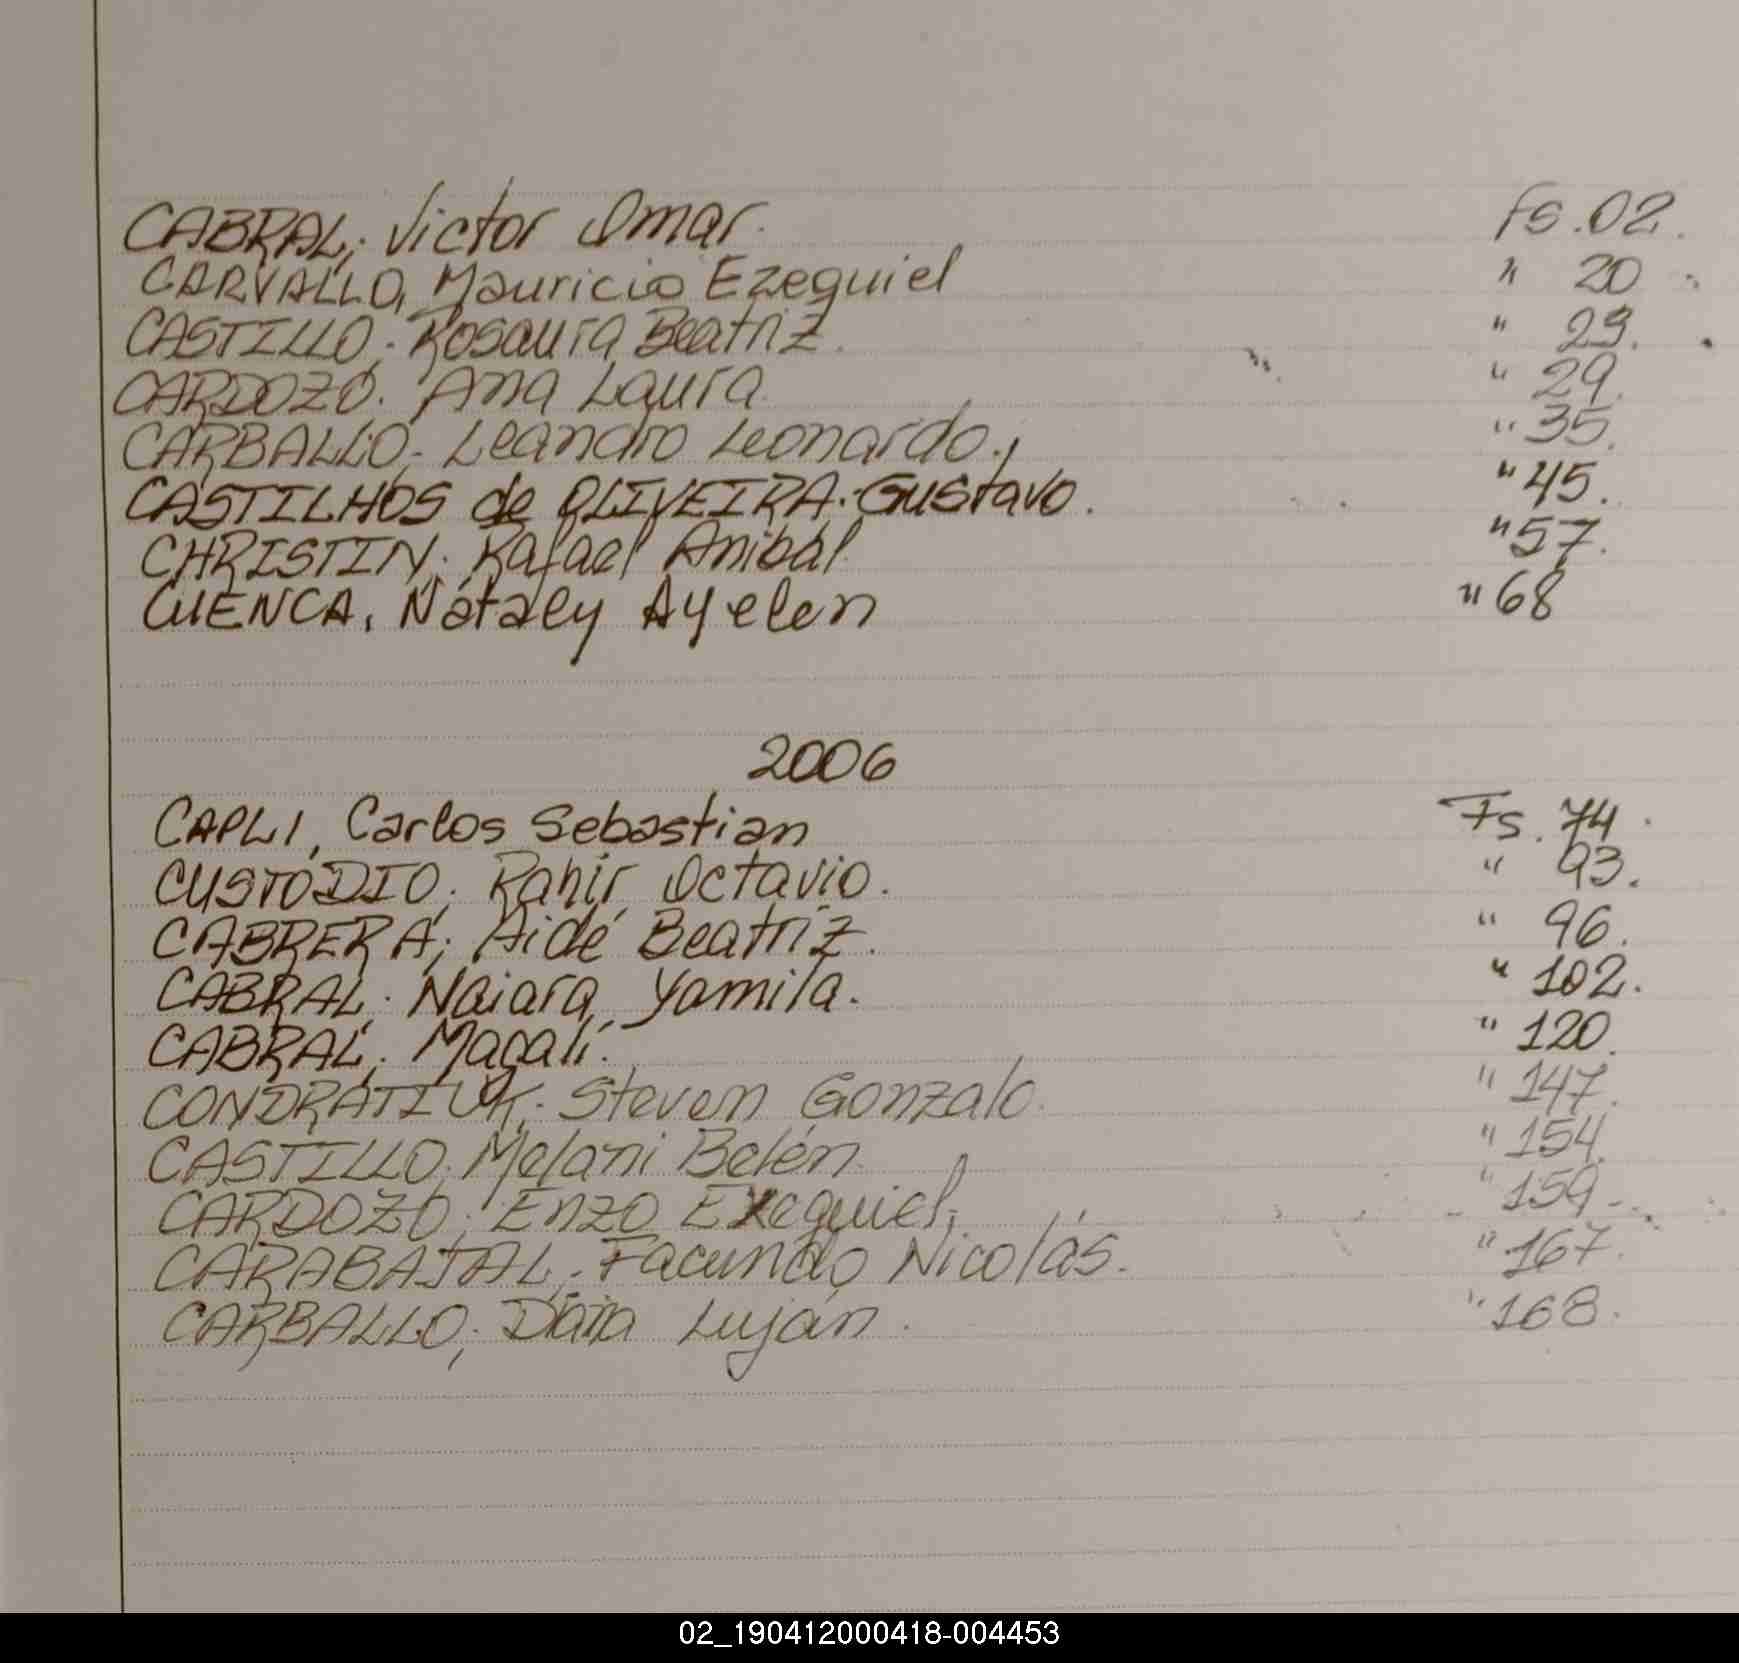 CABRAL, Victor Omar. Fs. 02.
CARVALLO, Mauricio Ezequiel " 20
CASTILLO. Rosaura Beatriz. " 23.
CARDOZO. Ana Laura. " 29.
CARBALLO. Leandro Leonardo. " 35.
CASTILHOS de OLIVEIRA. Gustavo. " 45.
CHRISTIN. Rafael Anibal. " 57.
CUENCA. Nataly Ayelen " 68
2006
CAPLI, Carlos Sebastian Fs. 74.
CUSTODIO; Octavio. " 93.
CABRERA; Aidé Beatriz. " 96.
CABRAL. Naiara Yamila. " 102.
CABRAL; Magali. " 120.
CONDRATIUK. Steven Gonzalo. " 147.
CASTILLO. Melani Belén. " 154.
CARDOZO; Enzo Exequiel. " 159.
CARABAJAL. Facundo Nicolás. " 167.
CARBALLO; Luján. " 168.
02_190412000418-004453